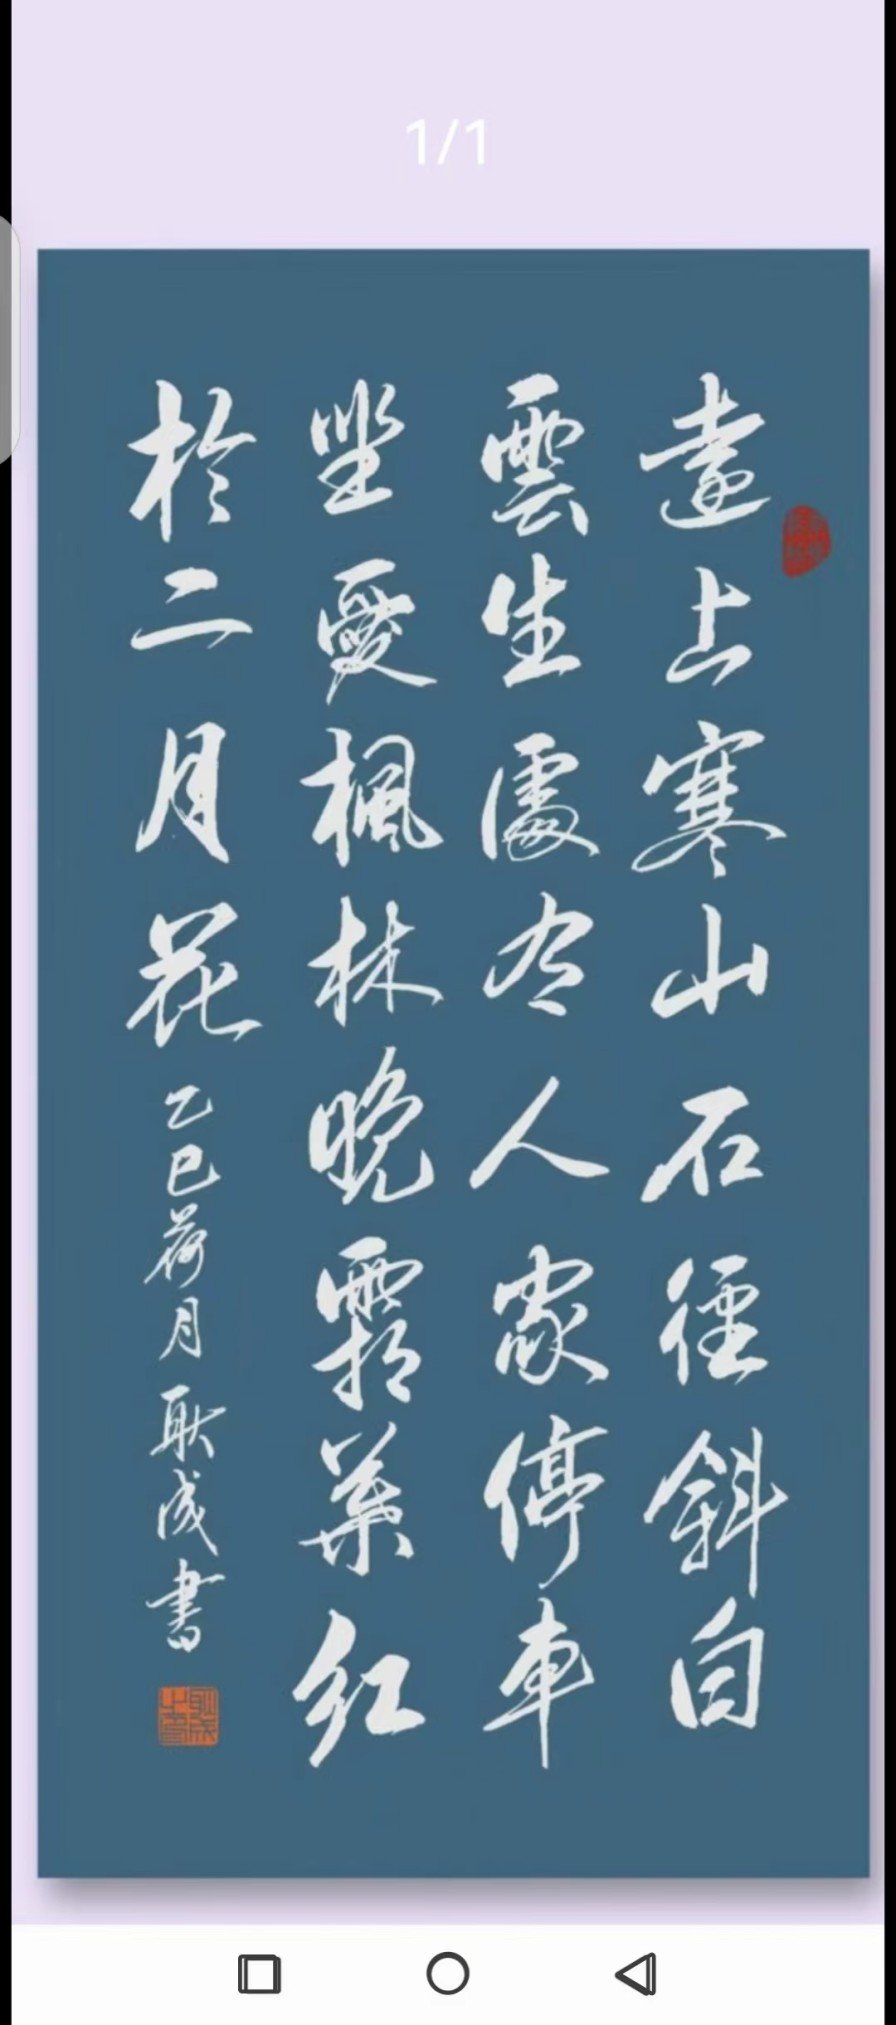 1/1
遠上寒山石徑斜白
雲生處冷人家停車
坐愛楓林晚霜葉红
於二月花
乙巳荷月耿成書